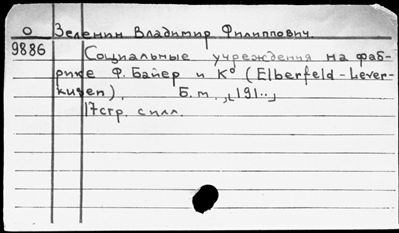 О Зеленин Владимир Филиппович.
9886 Социальные учреждения на фаб-
рике Ф. Байер и Кº (Elberfeld-Lever-
kusen), Б.м., [191..],
17стр. с илл.